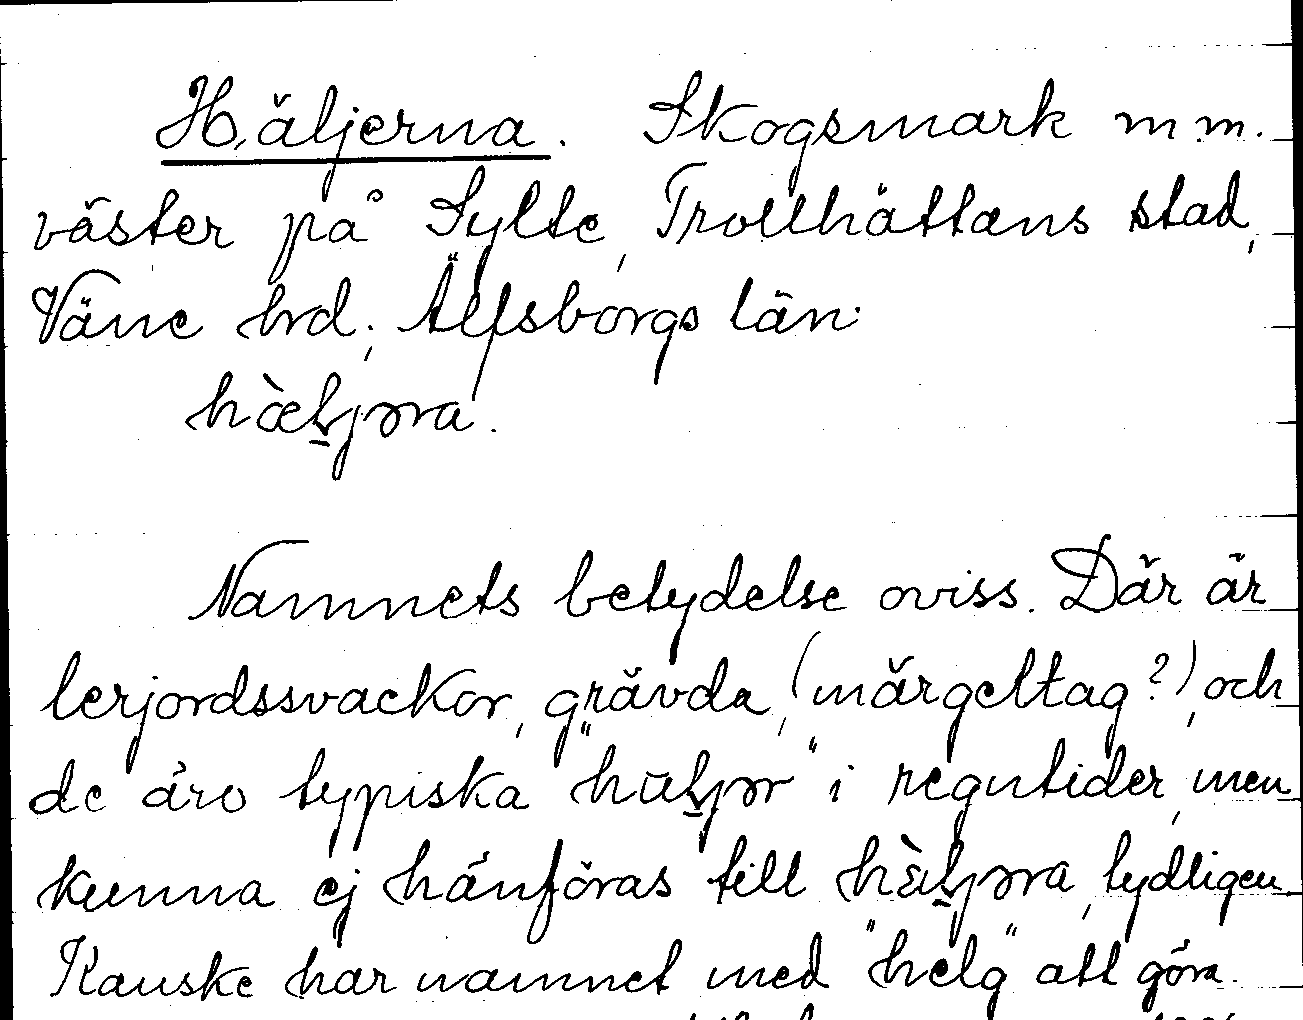 Häljerna. Skogsmark m.m.
väster på Sylte, Trollhättans stad,
Väne hrd, Älfsborgs län.
hæ̀ḷjəra.
Namnets betydelse oviss. Där är
lerjordssvackor, grävda, (märgeltag?), och
de äro typiska "høḷjər" i regntider, men
kunna ej hänföras till hæ̀ḷjəra, tydligen
Kanske har namnet med "helg" att göra.